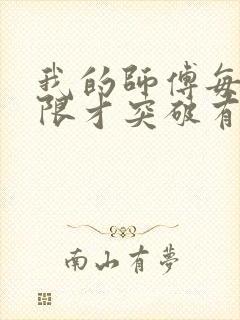 我的師傅每
限才突破有
南山有夢